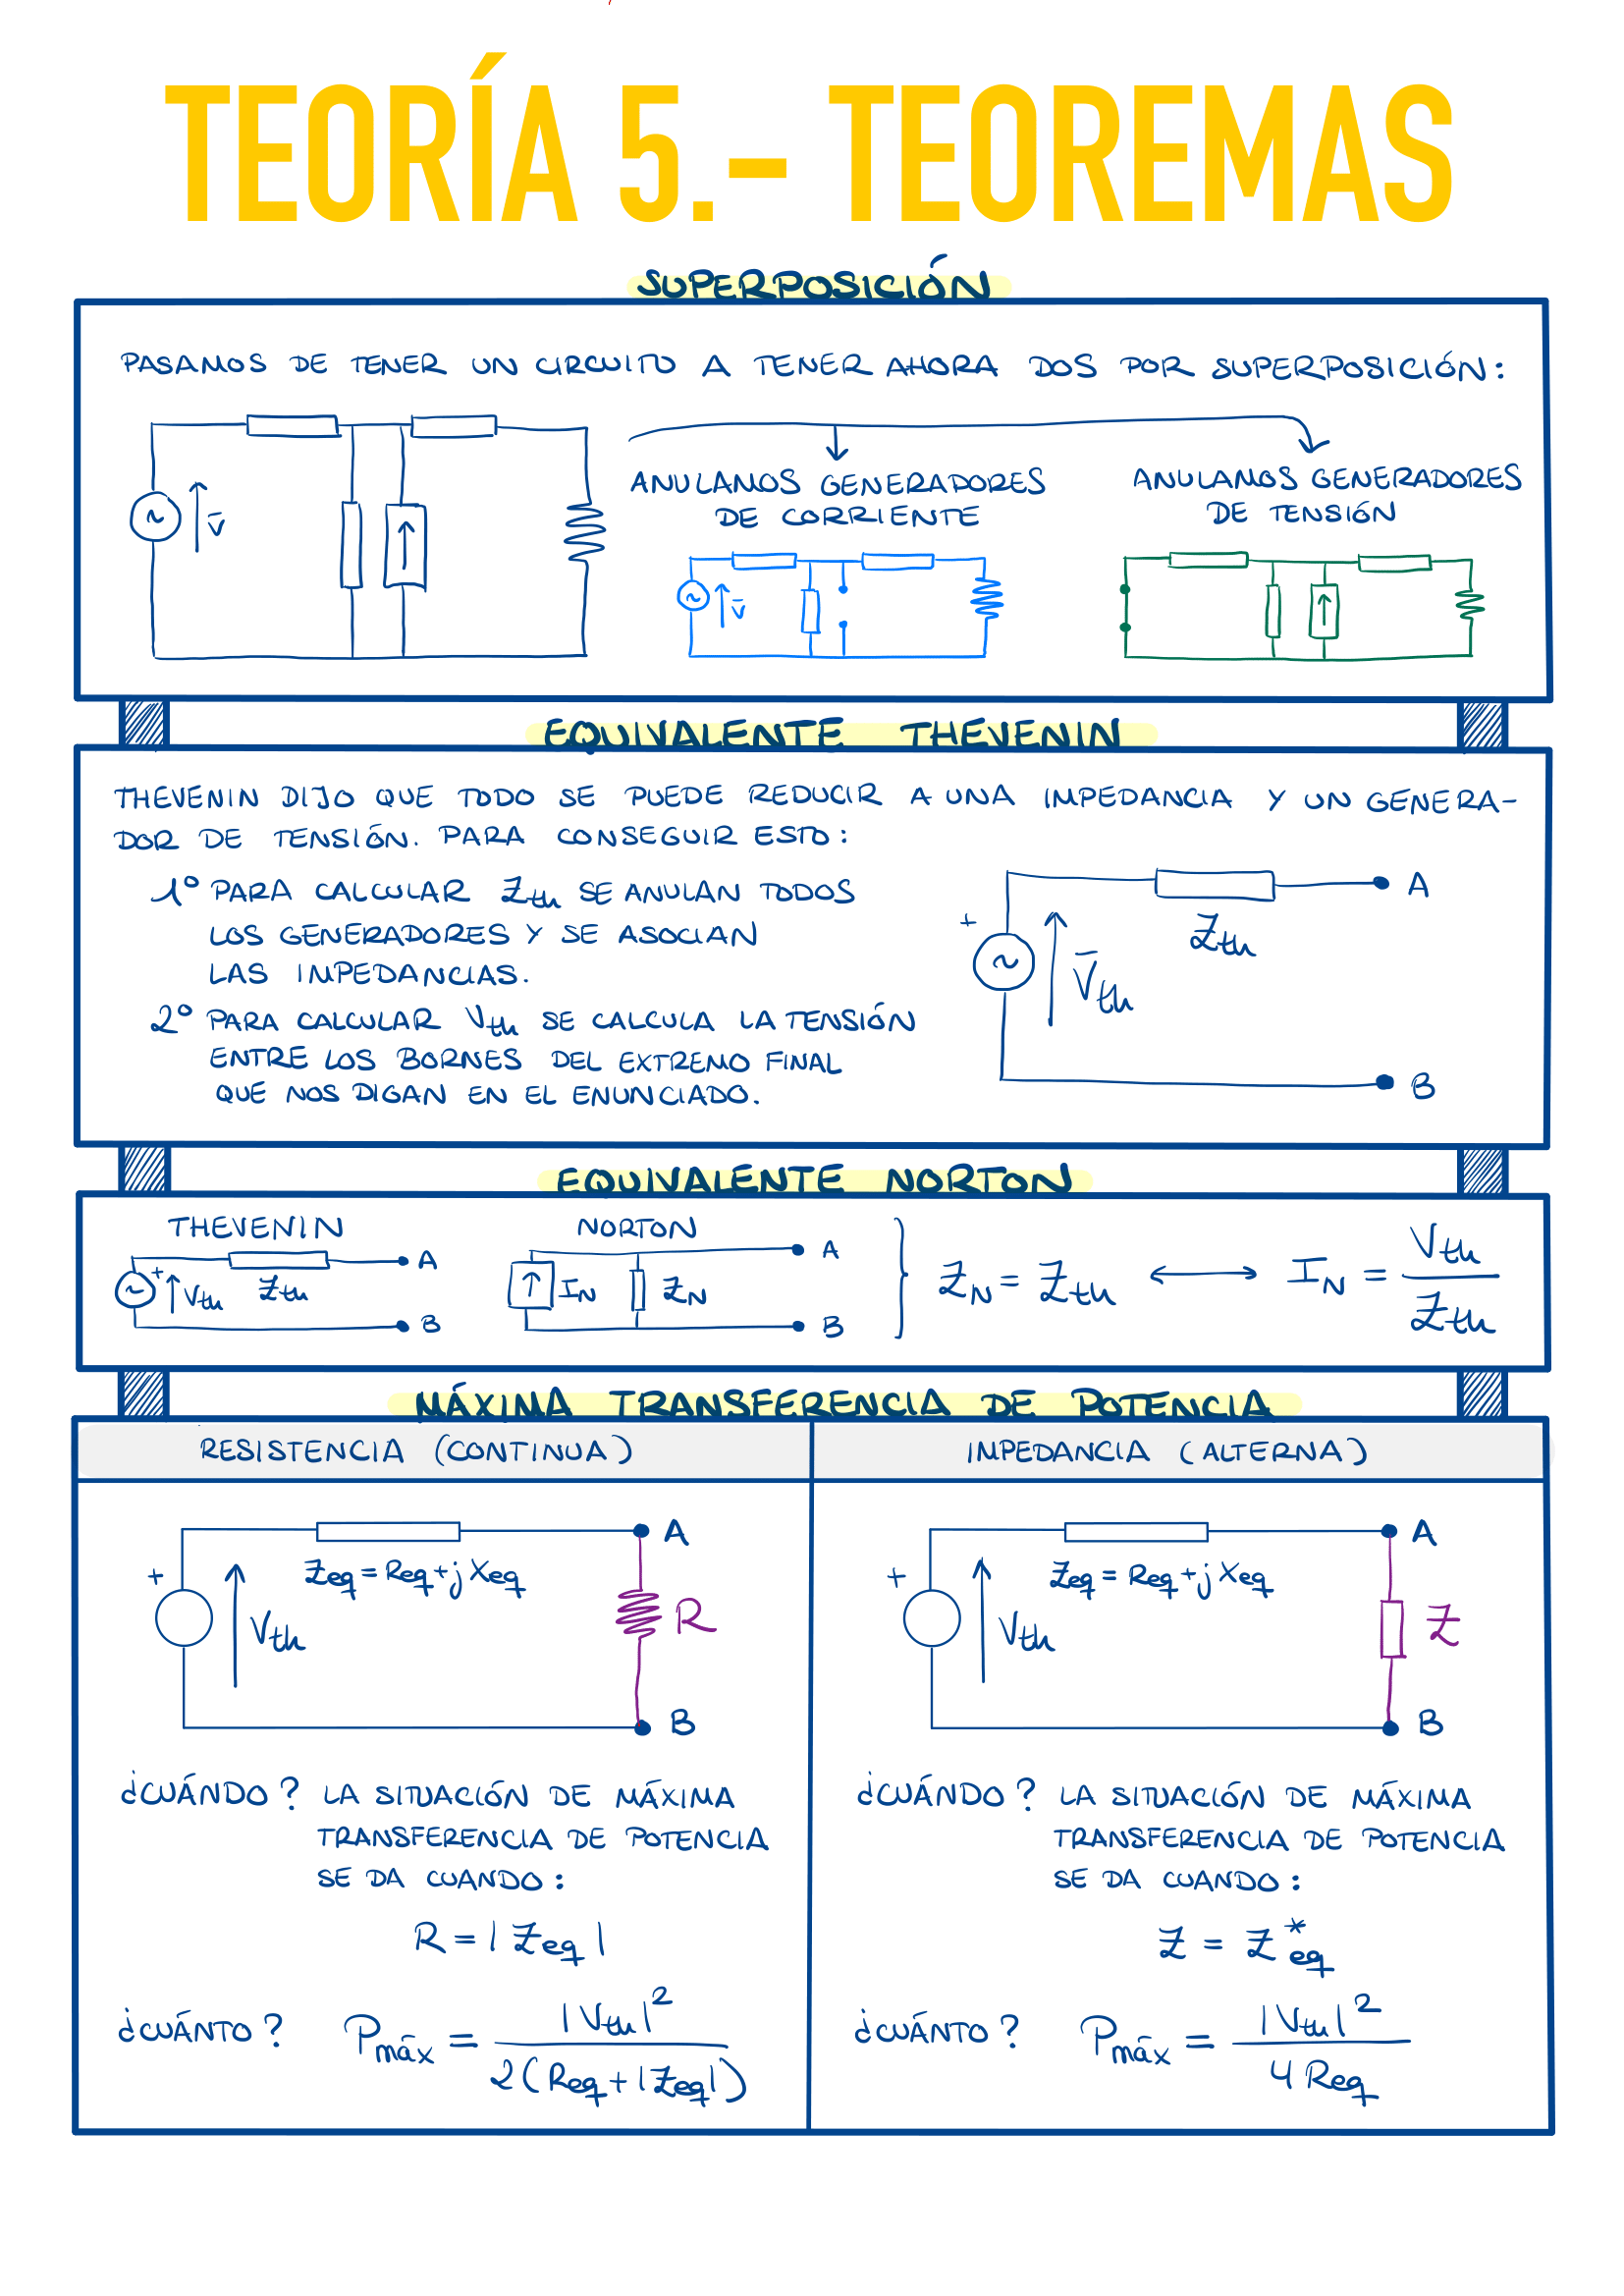 TEORÍA 5.- TEOREMAS
SUPERPOSICIÓN
PASAMOS DE TENER UN CIRCUITO A TENER AHORA DOS POR SUPERPOSICIÓN:
V̄
ANULAMOS GENERADORES
DE CORRIENTE
V̄
ANULAMOS GENERADORES
DE TENSIÓN
EQUIVALENTE THEVENIN
THEVENIN DIJO QUE TODO SE PUEDE REDUCIR A UNA IMPEDANCIA Y UN GENERA-
DOR DE TENSIÓN. PARA CONSEGUIR ESTO:
1º PARA CALCULAR Zth SE ANULAN TODOS
LOS GENERADORES Y SE ASOCIAN
LAS IMPEDANCIAS.
2º PARA CALCULAR Vth SE CALCULA LA TENSIÓN
ENTRE LOS BORNES DEL EXTREMO FINAL
QUE NOS DIGAN EN EL ENUNCIADO.
+ V̄th Zth A
B
EQUIVALENTE NORTON
THEVENIN
+ Vth Zth A
B
NORTON
IN ZN A
B
ZN = Zth ⟷ IN = Vth / Zth
MÁXIMA TRANSFERENCIA DE POTENCIA
RESISTENCIA (CONTINUA)
Zeq = Req + j Xeq
+ Vth A
R
B
¿CUÁNDO? LA SITUACIÓN DE MÁXIMA
TRANSFERENCIA DE POTENCIA
SE DA CUANDO:
R = |Zeq|
¿CUÁNTO? Pmáx = |Vth|² / 2(Req + |Zeq|)
IMPEDANCIA (ALTERNA)
Zeq = Req + j Xeq
+ Vth A
Z
B
¿CUÁNDO? LA SITUACIÓN DE MÁXIMA
TRANSFERENCIA DE POTENCIA
SE DA CUANDO:
Z = Z*eq
¿CUÁNTO? Pmáx = |Vth|² / 4 Req